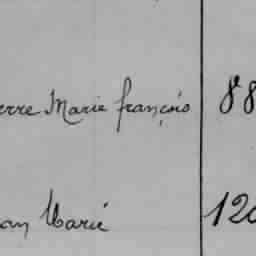 erre Marie françois 88
an Marie 120